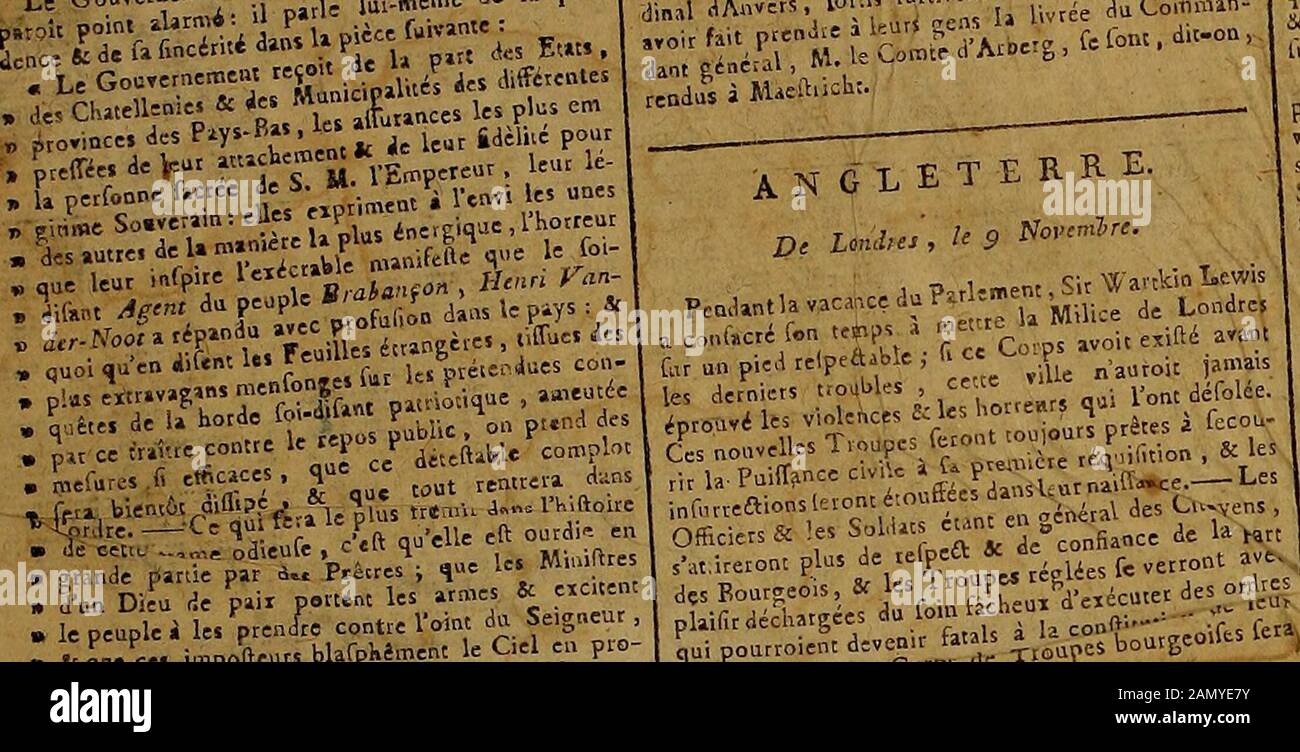 Le Gouvern
paroît point alarmé : il parle lui-même de la
dence & de ſa ſincérité dans la pièce ſuivante :
« Le Gouvernement reçoit de la part des Etats,
» des Chatellenies & des Municipalités des différentes
» provinces des Pays-Bas, les aſſurances les plus em
» preſſées de leur attachement & de leur fidèlité pour
» la perſonne ſacrée de S. M. l'Empereur, leur lé-
» gitime Souverain : elles expriment à l'envi les unes
» des autres de la manière la plus énergique, l'horreur
» que leur inſpire l'exécrable manifeſte que le ſoi-
» diſant Agent du peuple Brabançon, Henri Van-
» der-Noot a répandu avec profuſion dans le pays : &
» quoi qu'en diſent les Feuilles étrangères, tiſſues des
» plus extravagans menſonges ſur les prétendues con-
» quêtes de la horde ſoi-diſant patriotique, ameutée
» par ce traître contre le repos public, on prend des
» meſures ſi efficaces, que ce déteſtable complot
» ſera bientôt diſſipé, & que tout rentrera dans
» l'ordre. — Ce qui fera le plus frémir dans l'hiſtoire
» de cette odieuſe, c'eſt qu'elle eſt ourdie en
» grande partie par des Prêtres ; que les Miniſtres
» d'un Dieu de paix portent les armes & excitent
» le peuple à les prendre contre l'oint du Seigneur,
» & que ces impoſteurs blaſphêment le Ciel en pro-
dinal d'Anvers,
avoir fait prendre à leurs gens la livrée du Comman-
dant général, M. le Comte d'Arberg, ſe ſont, dit-on,
rendus à Maeſtricht.
ANGLETERRE.
De Londres, le 9 Novembre.
Pendant la vacance du Parlement, Sir Wartkin Lewis
a conſacré ſon temps à mettre la Milice de Londres
ſur un pied reſpectable ; ſi ce Corps avoit exiſté avant
les derniers troubles, cette ville n'auroit jamais
éprouvé les violences & les horreurs qui l'ont déſolée.
Ces nouvelles Troupes ſeront toujours prêtes à ſecou-
rir la Puiſſance civile à ſa première réquiſition, & les
inſurrections ſeront étouffées dans leur naiſſance. — Les
Officiers & les Soldats étant en général des Citoyens,
s'attireront plus de reſpect & de confiance de la part
des Bourgeois, & les Troupes réglées ſe verront avec
plaiſir déchargées du ſoin fâcheux d'exécuter des ordres
qui pourroient devenir fatals à la conſti
de Troupes bourgeoiſes ſera
alamy
Image ID: 2AMYE7Y
www.alamy.com